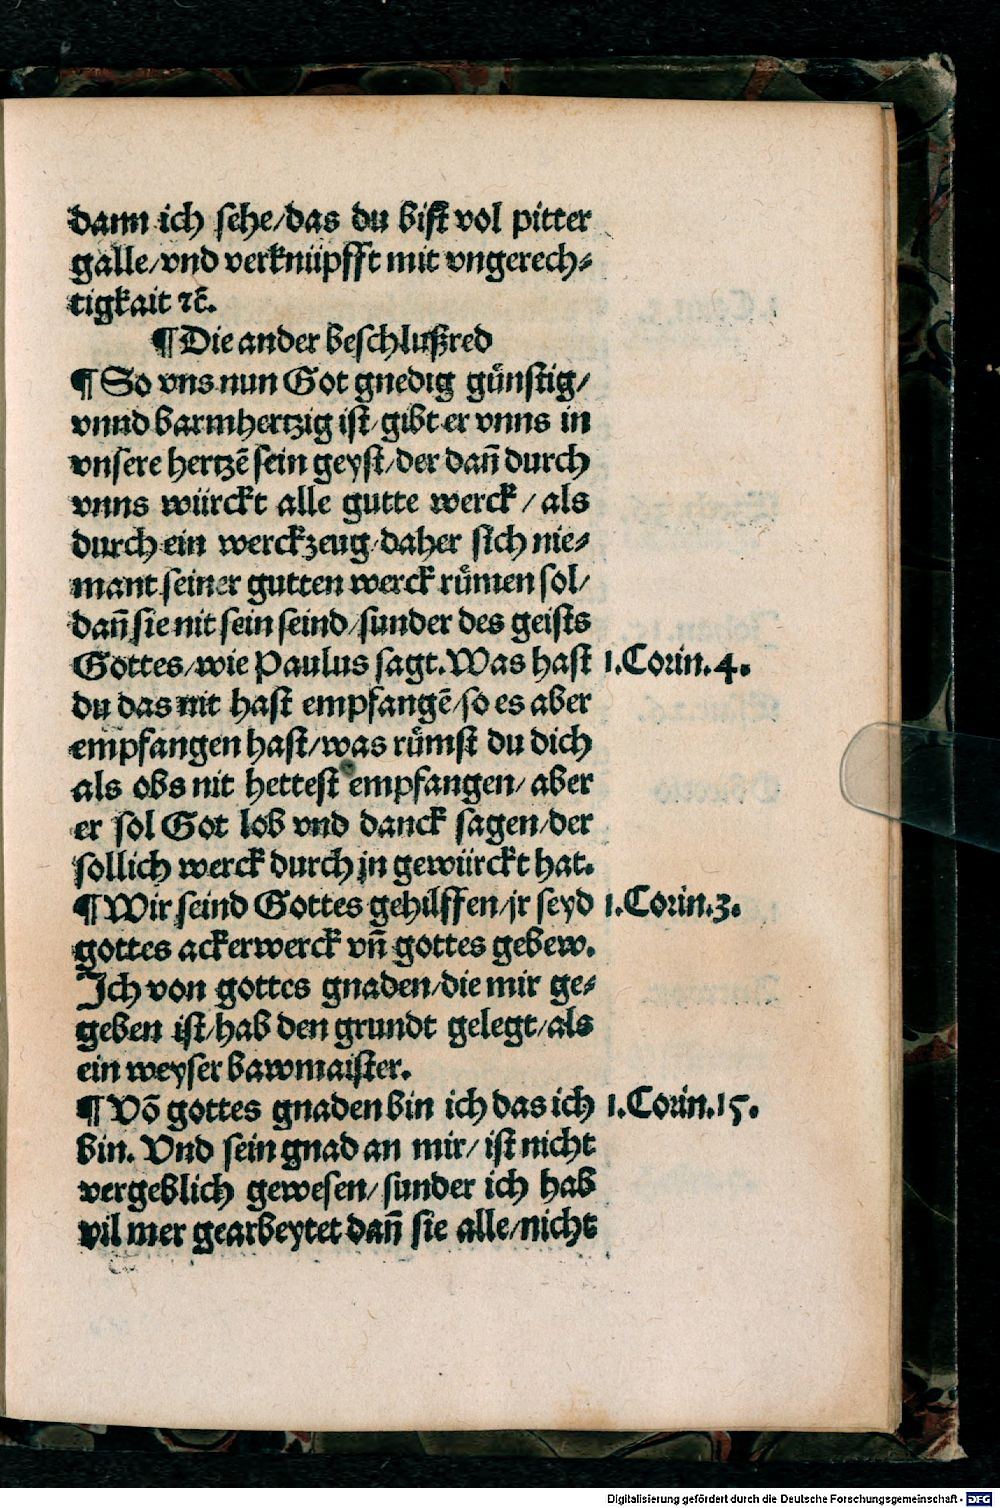 dann ich sehe/das du bist vol pitter
galle/vnd verknüpfft mit vngerech⸗
tigkait ꝛc̃.
¶Die ander beschlußred
¶So vns nun Got gnedig gůnstig/
vnnd barmhertzig ist/gibt er vnns in
vnsere hertzẽ sein geyst/der dañ durch
vnns würckt alle gutte werck/als
durch ein werckzeug/daher sich nie⸗
mant seiner gutten werck růmen sol/
dañ sie nit sein seind/sunder des geists
Gottes/wie Paulus sagt.Was hast 1.Corin.4.
du das nit hast empfangẽ/so es aber
empfangen hast/was růmst du dich
als obs nit hettest empfangen/aber
er sol Got lob vnd danck sagen/der
sollich werck durch jn gewürckt hat.
¶Wir seind Gottes gehilffen/jr seyd 1.Corin.3.
gottes ackerwerck vñ gottes gebew.
Ich von gottes gnaden/die mir ge⸗
geben ist/hab den grundt gelegt/als
ein weyser bawmaister.
¶Võ gottes gnaden bin ich das ich 1.Corin.15.
bin. Vnd sein gnad an mir/ist nicht
vergeblich gewesen/sunder ich hab
vil mer gearbeytet dañ sie alle/nicht
Digitalisierung gefördert durch die Deutsche Forschungsgemeinschaft - DFG